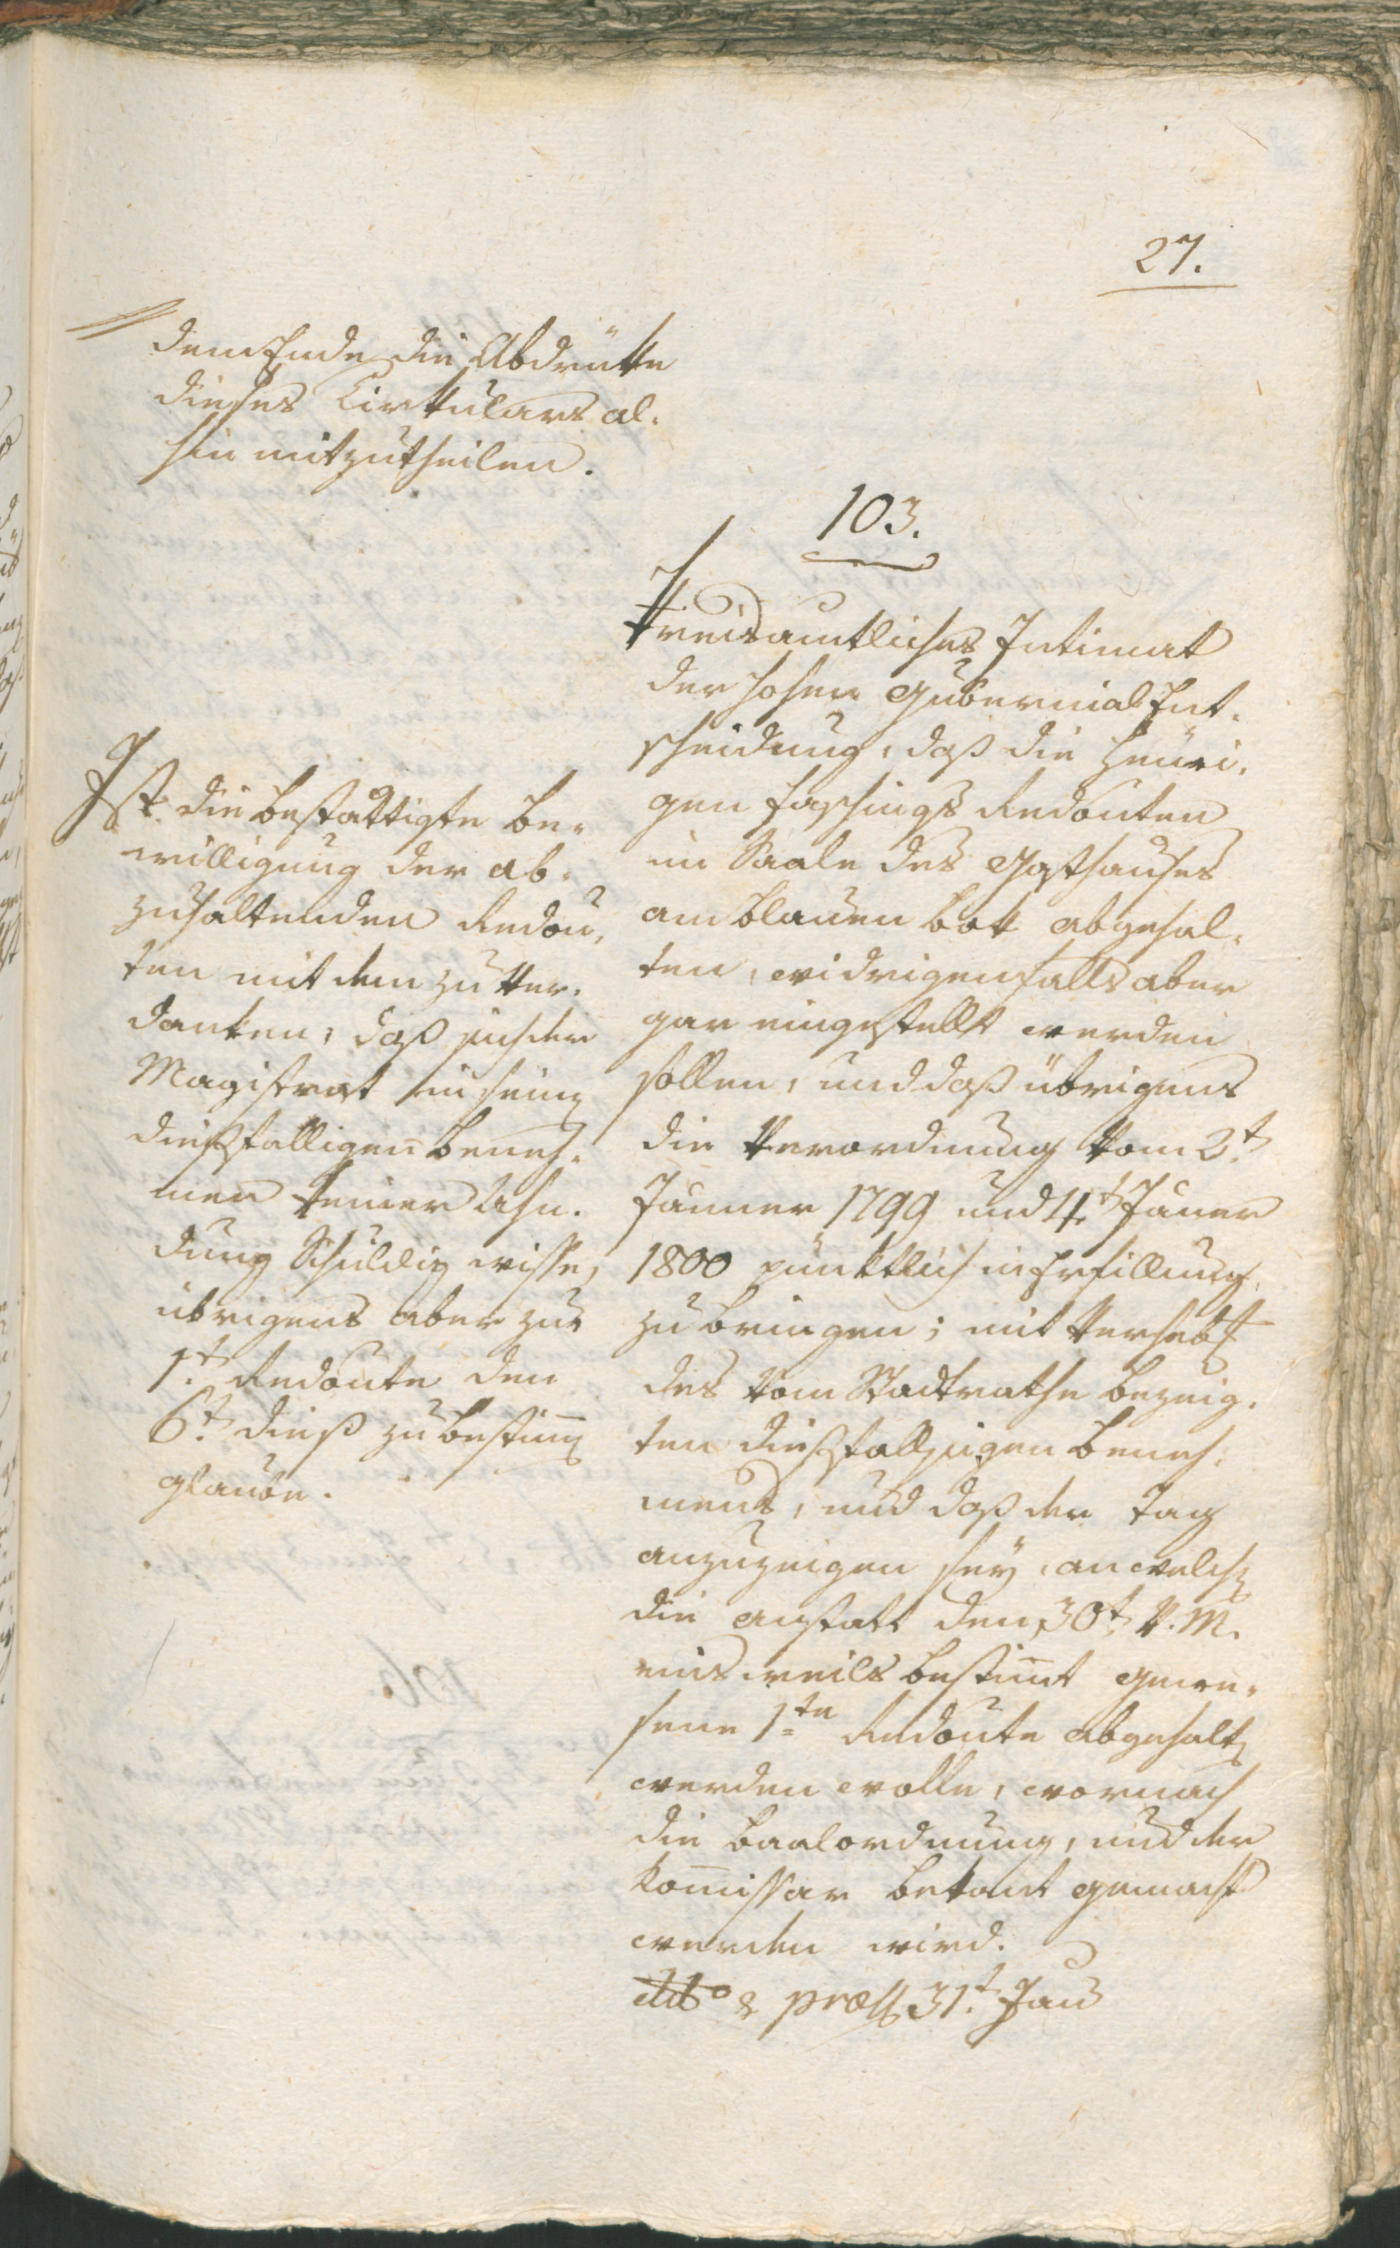 27.
dem Ende die Abdrükke
dieses Cirkulars al-
hin mitzutheilen.
103.
Kreisamtliches Intimat
der hohen Gubernial Ent-
scheidung, daß die heuri-
gen Faschings Redouten
im Saale des Gasthauses
am blauen Bok abgehal-
ten, widrigenfalls aber
gar eingestellt werden
sollen, und daß übrigens
die Verordnung vom 2t.
Jänner 1799 und 4t. Jäner
1800 pünktlich in Erfüllung
zu bringen; mit
des vom Stadtrathe bezeig-
ten dießfälligen Beneh-
mens, und daß der Tag
anzuzeigen sey, an welch
die anstatt den 30t. v. M.
bestimt gewe-
sene 1te Redoute abgehalt
werden wolle, wornach
die Baalordnung, und der
Komissär bekant gemacht
werden wird.
ddto & præs 31t. Jan
Ist die bestättigte Be-
willigung der ab-
zuhaltenden Redou-
ten mit dem zu ver-
danken, daß sich der
Magistrat in sein
dießfälligen Beneh-
men keiner Ahn-
dung schuldig wisse,
übrigens aber zur
1t. Redoute den
6t. dieß zu bestim
glaube.